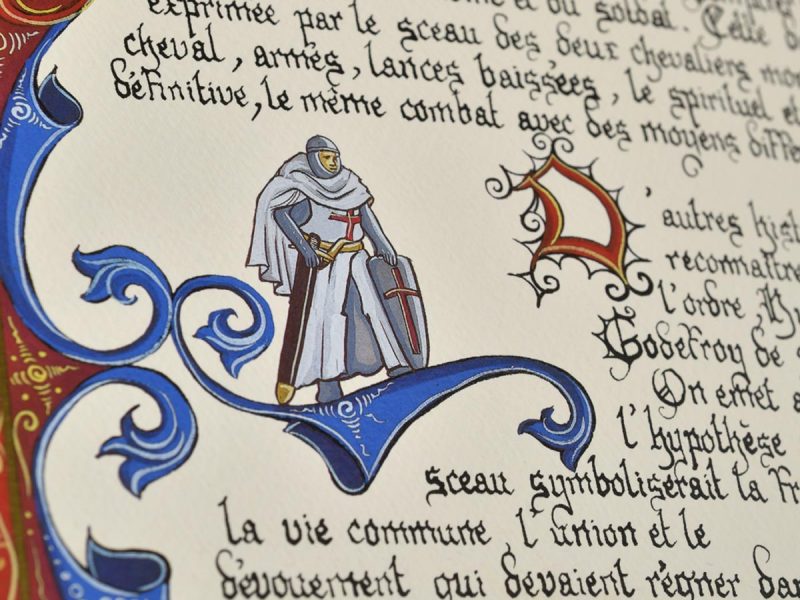 et du soldat. Celle
exprimée par le sceau des deux chevaliers
cheval, armés, lances baissées, le spirituel et
définitive, le même combat avec des moyens
D'autres
reconnaître
l'ordre,
Godefroy de
On émet
l'hypothèse
sceau symboliserait la
la vie commune, l'union et le
dévouement qui devaient régner